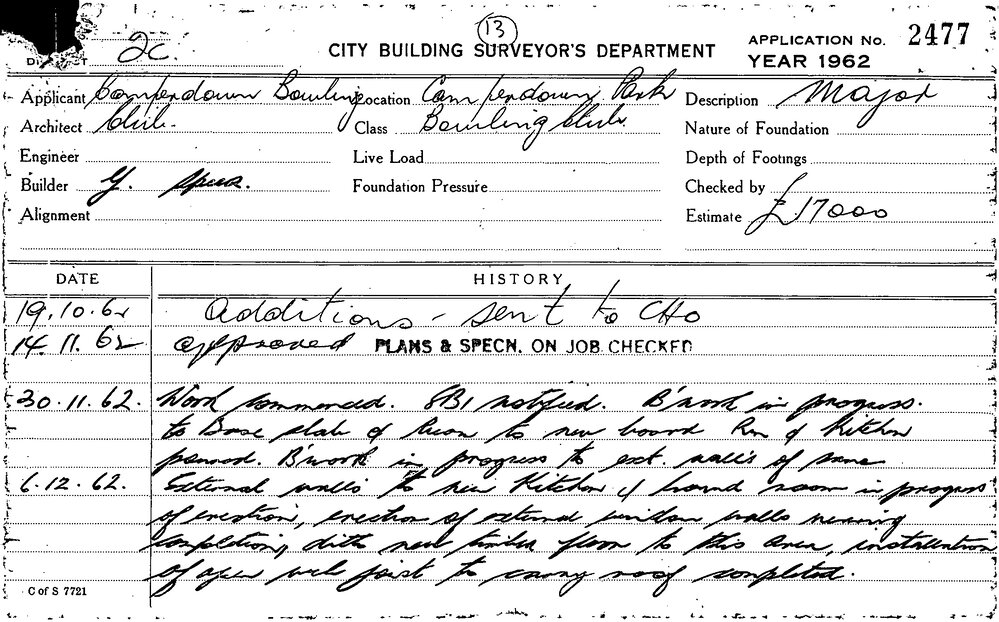 13
2c.
CITY BUILDING SURVEYOR'S DEPARTMENT
APPLICATION No. 2477
YEAR 1962
Applicant Camperdown Bowling
Location Camperdown Park
Description Major
Architect Club.
Class Bowling Club.
Nature of Foundation
Engineer
Live Load
Depth of Footings
Builder G.
Foundation Pressure
Checked by
Alignment
Estimate £17000
DATE HISTORY
19.10.62 Additions - sent to CHO
14.11.62 approved PLANS & SPECN. ON JOB CHECKED
30.11.62. Work commenced. SBI notified. B'work in progress.
to Base slab of to new board Rm & Kitchen
poured. B'work in progress to ext. walls of same
6.12.62. External walls to new Kitchen & board room in progress
of erection, erection of external walls nearing
completion, ditto new timber floor to this area, installation
of open web joist to carry roof completed.
C of S 7721